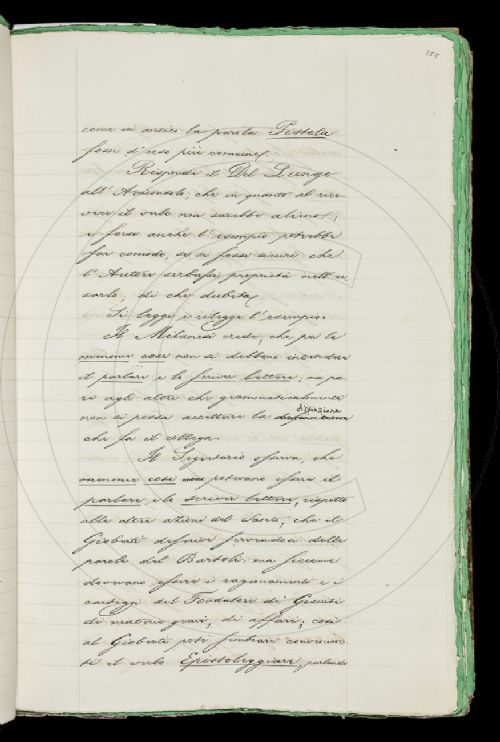 255
come in antico la parola Pistola
fosse d'uso più comune.
Risponde il Del Lungo
all'Arciconsolo, che in quanto al rice-
vere il verbo non sarebbe alieno;
e forse anche l'esempio potrebbe
far comodo, se si fosse sicuri che
l'Autore serbasse proprietà nell'u
sarlo, di che dubita.
Si legge e rilegge l'esempio.
Il Milanesi crede, che per le
menome cose non si debbano intendere
il parlare e lo scriver lettere; ma pa-
re agli altri che grammaticalmente
non si possa accettare la distinzione
che fa il collega.
Il Segretario osserva, che
menome cose potevano essere il
parlare, e lo scriver lettere, rispetto
alle altre azioni del Santo, che il
Gioberti descrive servendosi delle
parole del Bartoli; ma siccome
dovevano essere i ragionamenti e i
carteggi del Fondatore di Gesuiti
di materie gravi, di affari; così
al Gioberti potè sembrare conveniente
il verbo Epistoleggiare, parlando